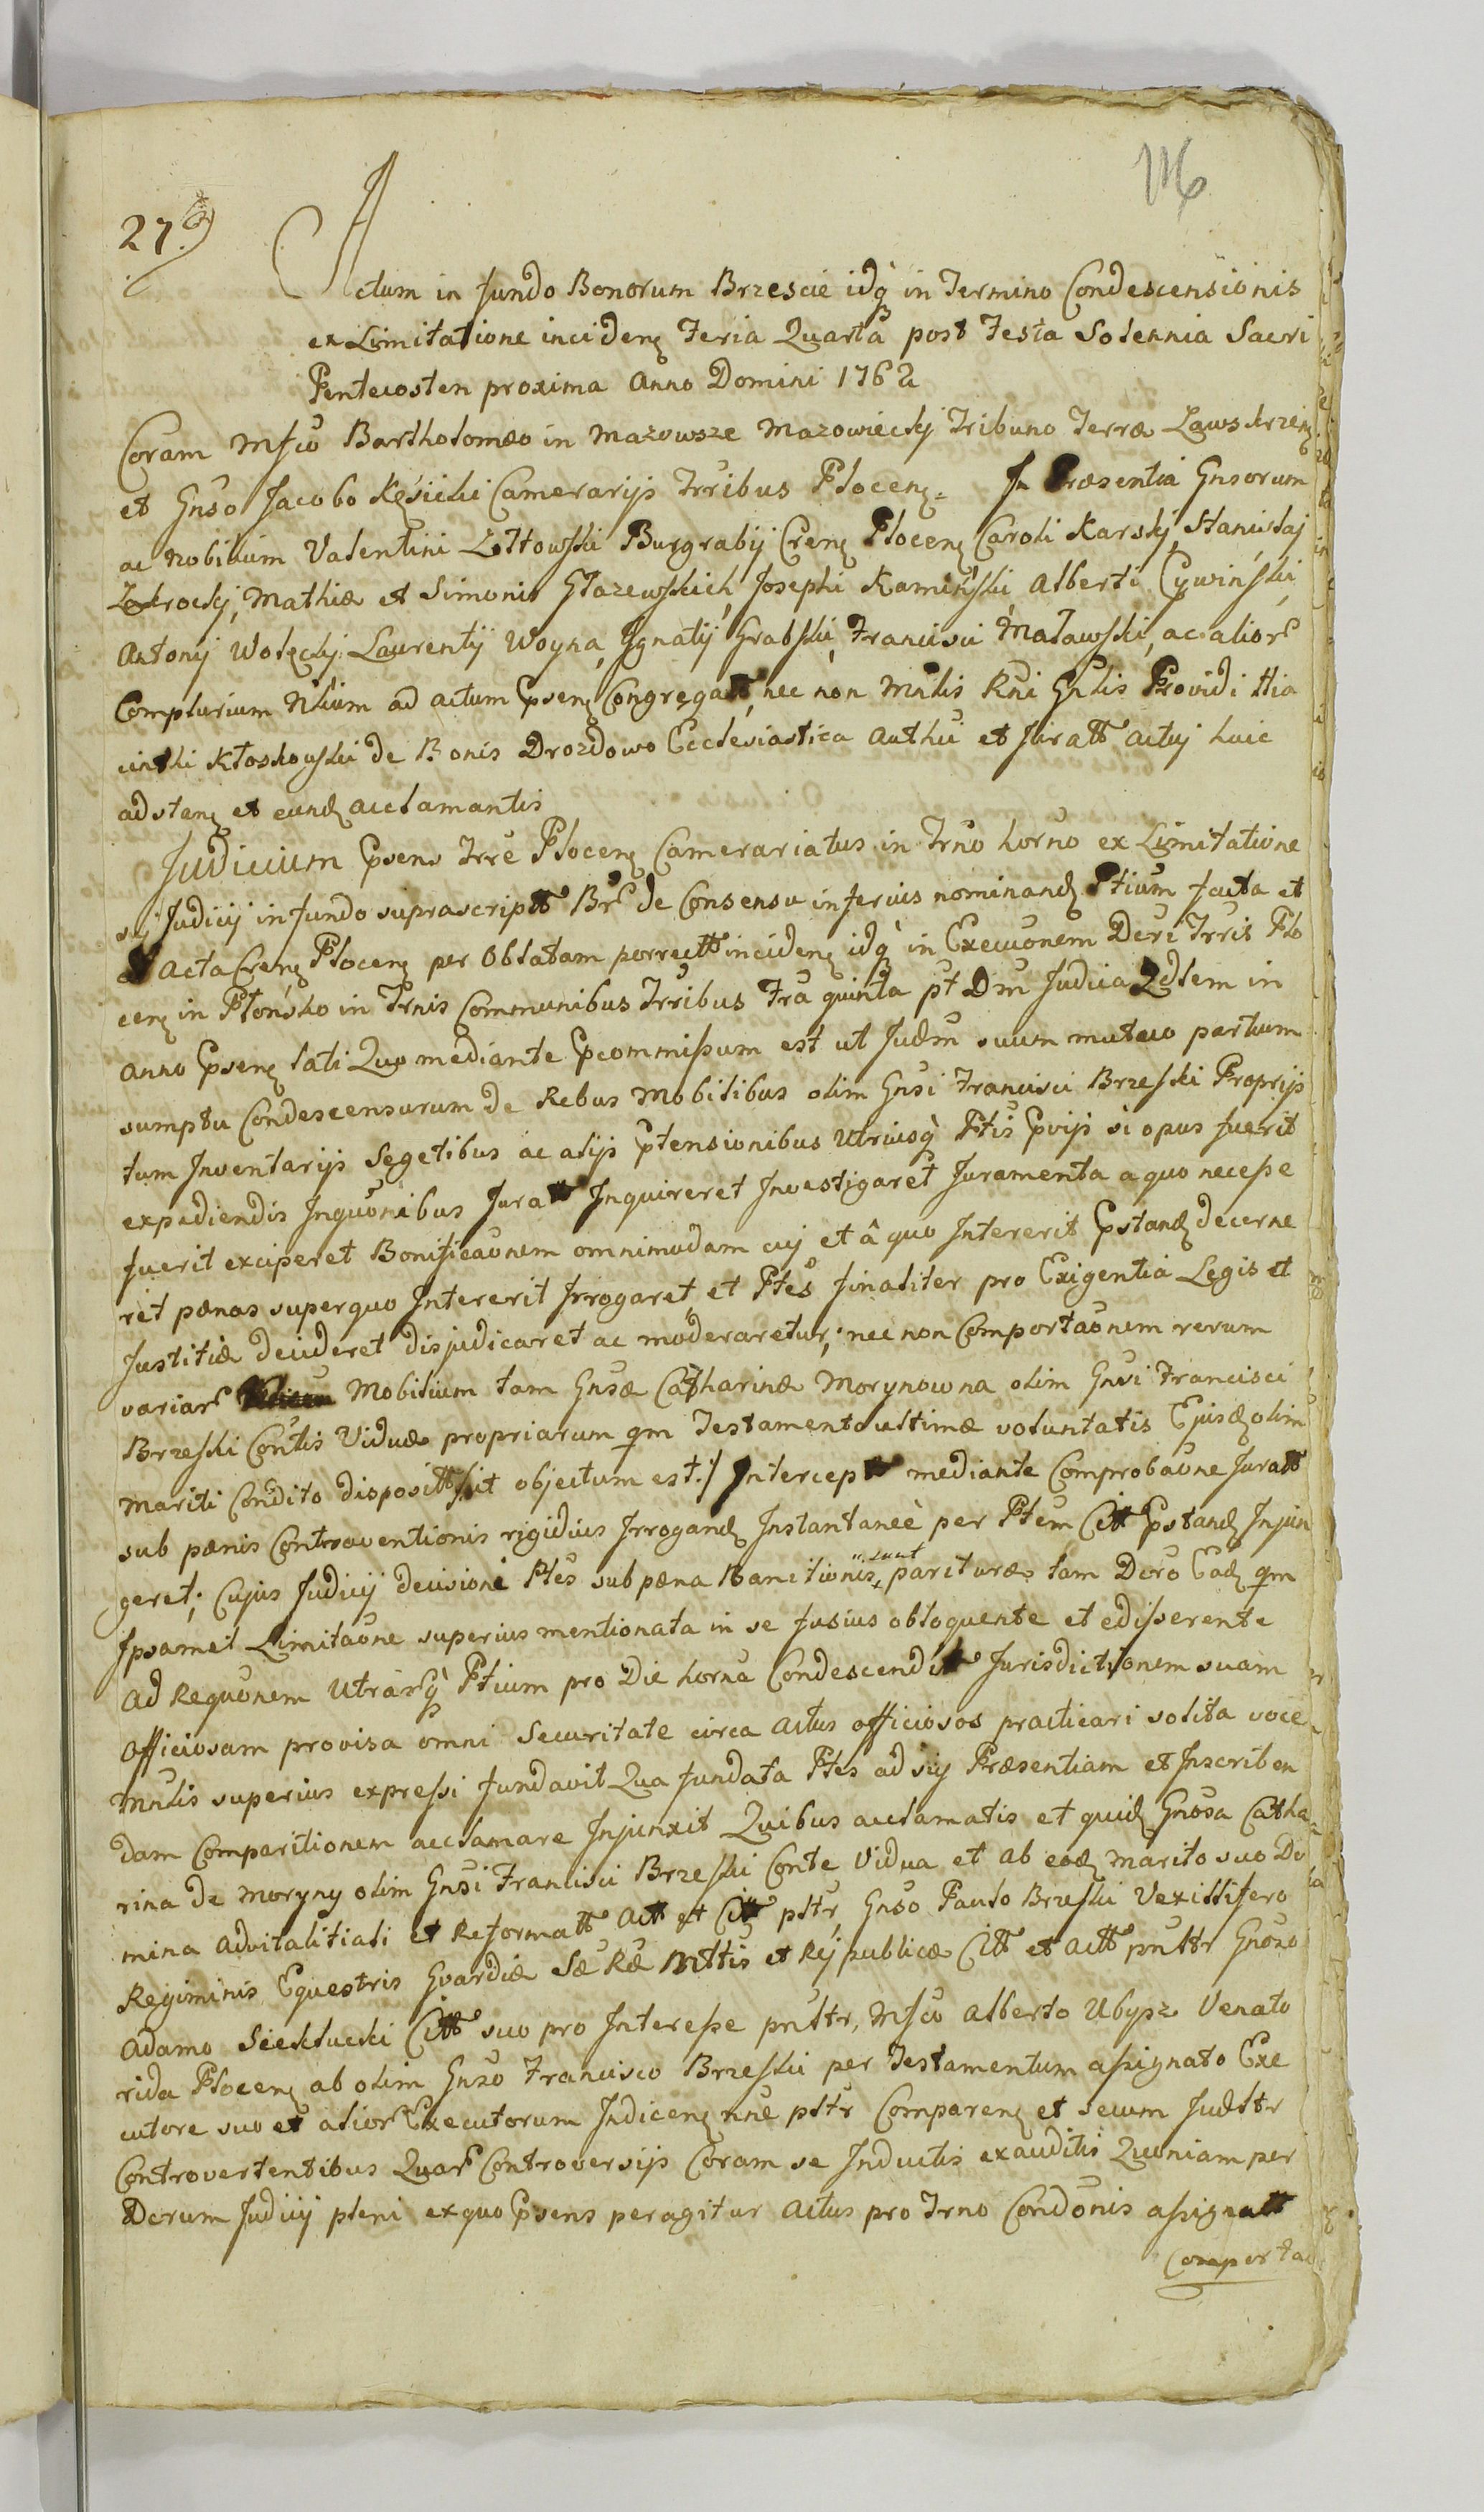 116
27
Actum in fundo Bonorum Brzescie idq̀ in Termino Condescensionis
ex Limitatione inciden Feria Quarta post Festa Solennia Sacri
Pentecosten proxima Anno Domini 1762
Coram Mfco Bartholomæo in Mazowsze Mazowieckj Tribuno Terræ Zawskrzen
et Gnso Jacobo Kęsicki Camerarijs Trribus Plocen= In Præsentia Gnsorum
ac Nobilium Valentini Zołtowski Burgrabij Cren Plocen Caroli Karskj, Stanislaj
Zakrockj, Mathiæ et Simonis Głazewskich, Josephi Kamiński Alberti Cywiński,
Antonij Wołęckj Laurentij Woyna, Ignatij Grabski, Francisci Maławski, ac alior
Complurium Nlium ad actum Psen Congregatt, nec non Mnlis Rni Gnlis Providi Hia
cinthi Kłoskowski de Bonis Drozdowo Ecclesiastica Authci et Juratt actuj huic
adsten et eund acclamantis
Judicium Psens Trre Plocen Camerariatus in Trno horno ex Limitatione
suj Judicij in fundo suprascriptt Br de Consensu inferius nominand Ptium facta et
ad Acta Cren Plocen per Oblatam porrectt inciden idq̀ in Execuonem Decri Trris Plo
cen in Płońsko in Trnis Communibus Trribus Fra quinta pt Dm Judica Qdlem in
Anno Psen lati Quo mediante Pcommissum est ut Judm suum mutuo partium
sumptu Condescensurum de Rebus Mobilibus olim Gnsi Francisci Brzeski Proprijs
tum Inventarijs Segetibus ac alijs Ptensionibus Utriusq̀ Ptis Pvijs si opus fuerit
expediendis Inquonibus Juratt Inquireret Investigaret Juramenta a quo necesse
fuerit exciperet Bonificaonem omnimodam cuj et â quo Intererit Pstand decerne
ret pænas super quo Intererit Irrogaret, et Ptes finaliter pro Exigentia Legis et
Justitiæ decideret disjudicaret ac moderaretur, nec non Comportaonem rerum
variar Mobilium tam Gnsæ Catharinæ Morynowna olim Gnsi Francisci
Brzeski Contis Viduæ propriarum qm Testamento ultimæ voluntatis Ejusd olim
Mariti Condito dispositt /ut objectum est:/ Intercept mediante Comprobaone Juratt
sub pænis Contraventionis rigidius Irrogand Instantaneè per Ptem Citt Pstand Injun
geret; Cujus Judicij decisioni Ptes sub pæna Banitionis sunt parituræ tam Dcro Ead qm
Ipsamet Limitaone superius mentionata in se fusius obloquente et edisserente
Ad Requonem Utrarq̀ Ptium pro Die horna Condescendit Jurisdictionem suam
Officiosam provisa omni Securitate circa actus officiosos practicari solita voce
Mnlis superius expressi fundavit Qua fundata Ptes ad sui Præsentiam et Inscriben
dam Comparitionem acclamare Injunxit Quibus acclamatis et quid Gnosa Catha
rina de Moryny olim Gnsi Francisci Brzeski Conte Vidua et ab eod marito suo Do
mina Advitalitiali et Reformatt Actt et Citt pltr, Gnso Paulo Brzeski Vexillifero
Regiminis Equestris Gvardiæ Sæ Ræ Mttis et Rej publicæ Citt et Actt pnltr Gnoso
Adamo Siekłucki Citt suo pro Interesse pnltr, Mfco Alberto Ubysz Venato
rida Plocen ab olim Gnso Francisco Brzeski per Testamentum assignato Exe
cutore suo et alior Executorum Indicen nne pltr Comparen et secum Judltr
Controvertentibus Quar Controversijs Coram se Inductis exauditis Quoniam per
Dcrum Judicij pleni ex quo Psens peragitur Actus pro Trno Condonis assignatt
Comporta